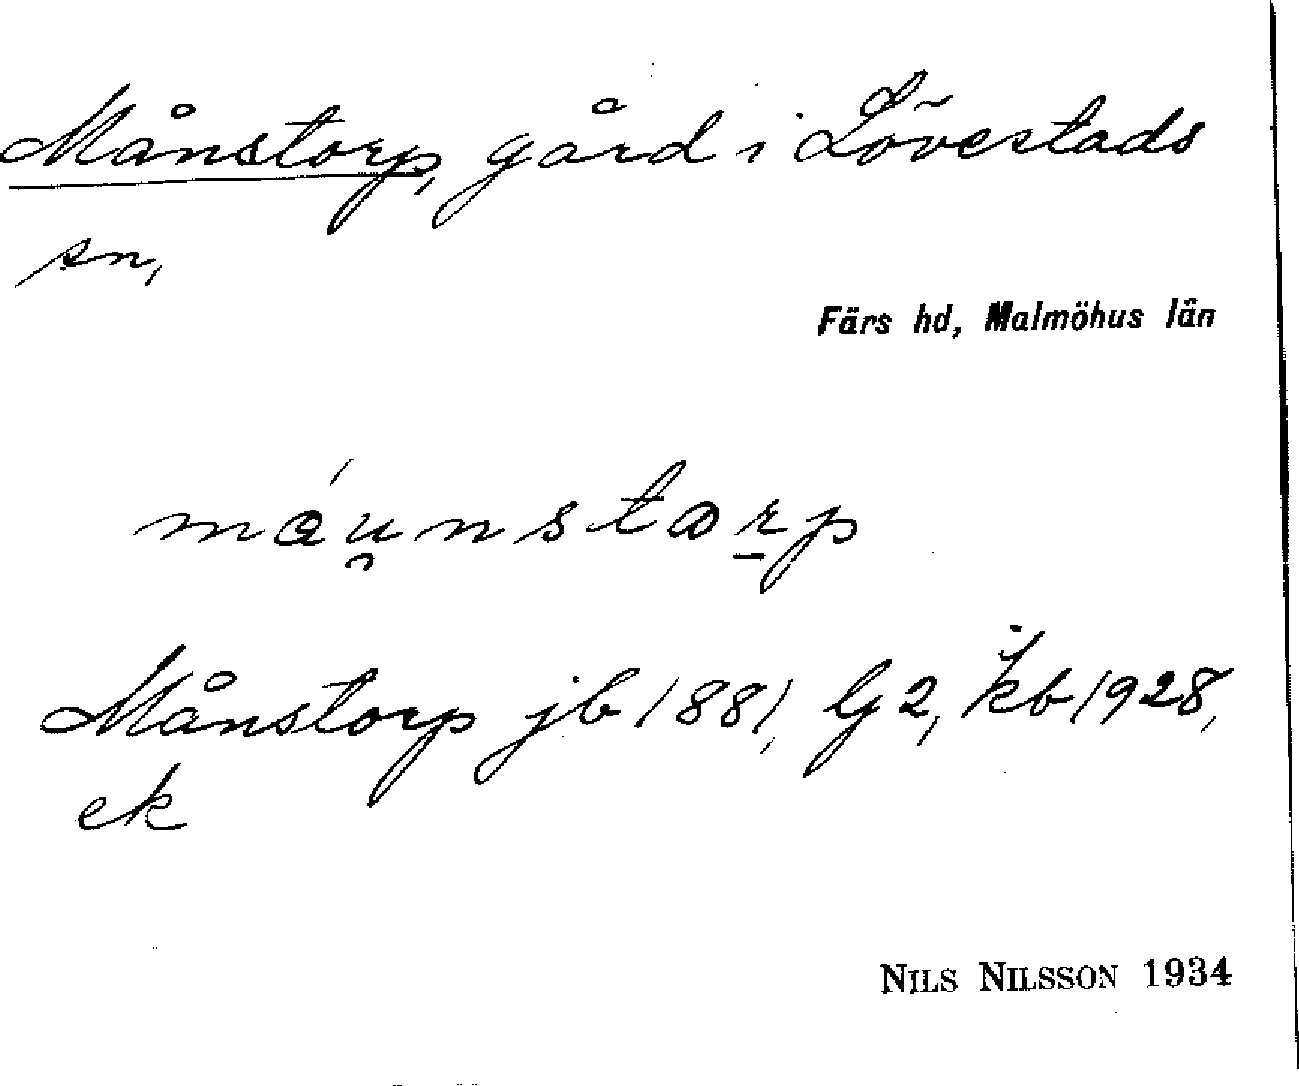 Månstorp, gård i Lövestads
sn,
Färs hd, Malmöhus län
máu̯nstꝏr̠p
Månstorp jb 1881, G2, kb 1928,
ek
NILS NILSSON 1934